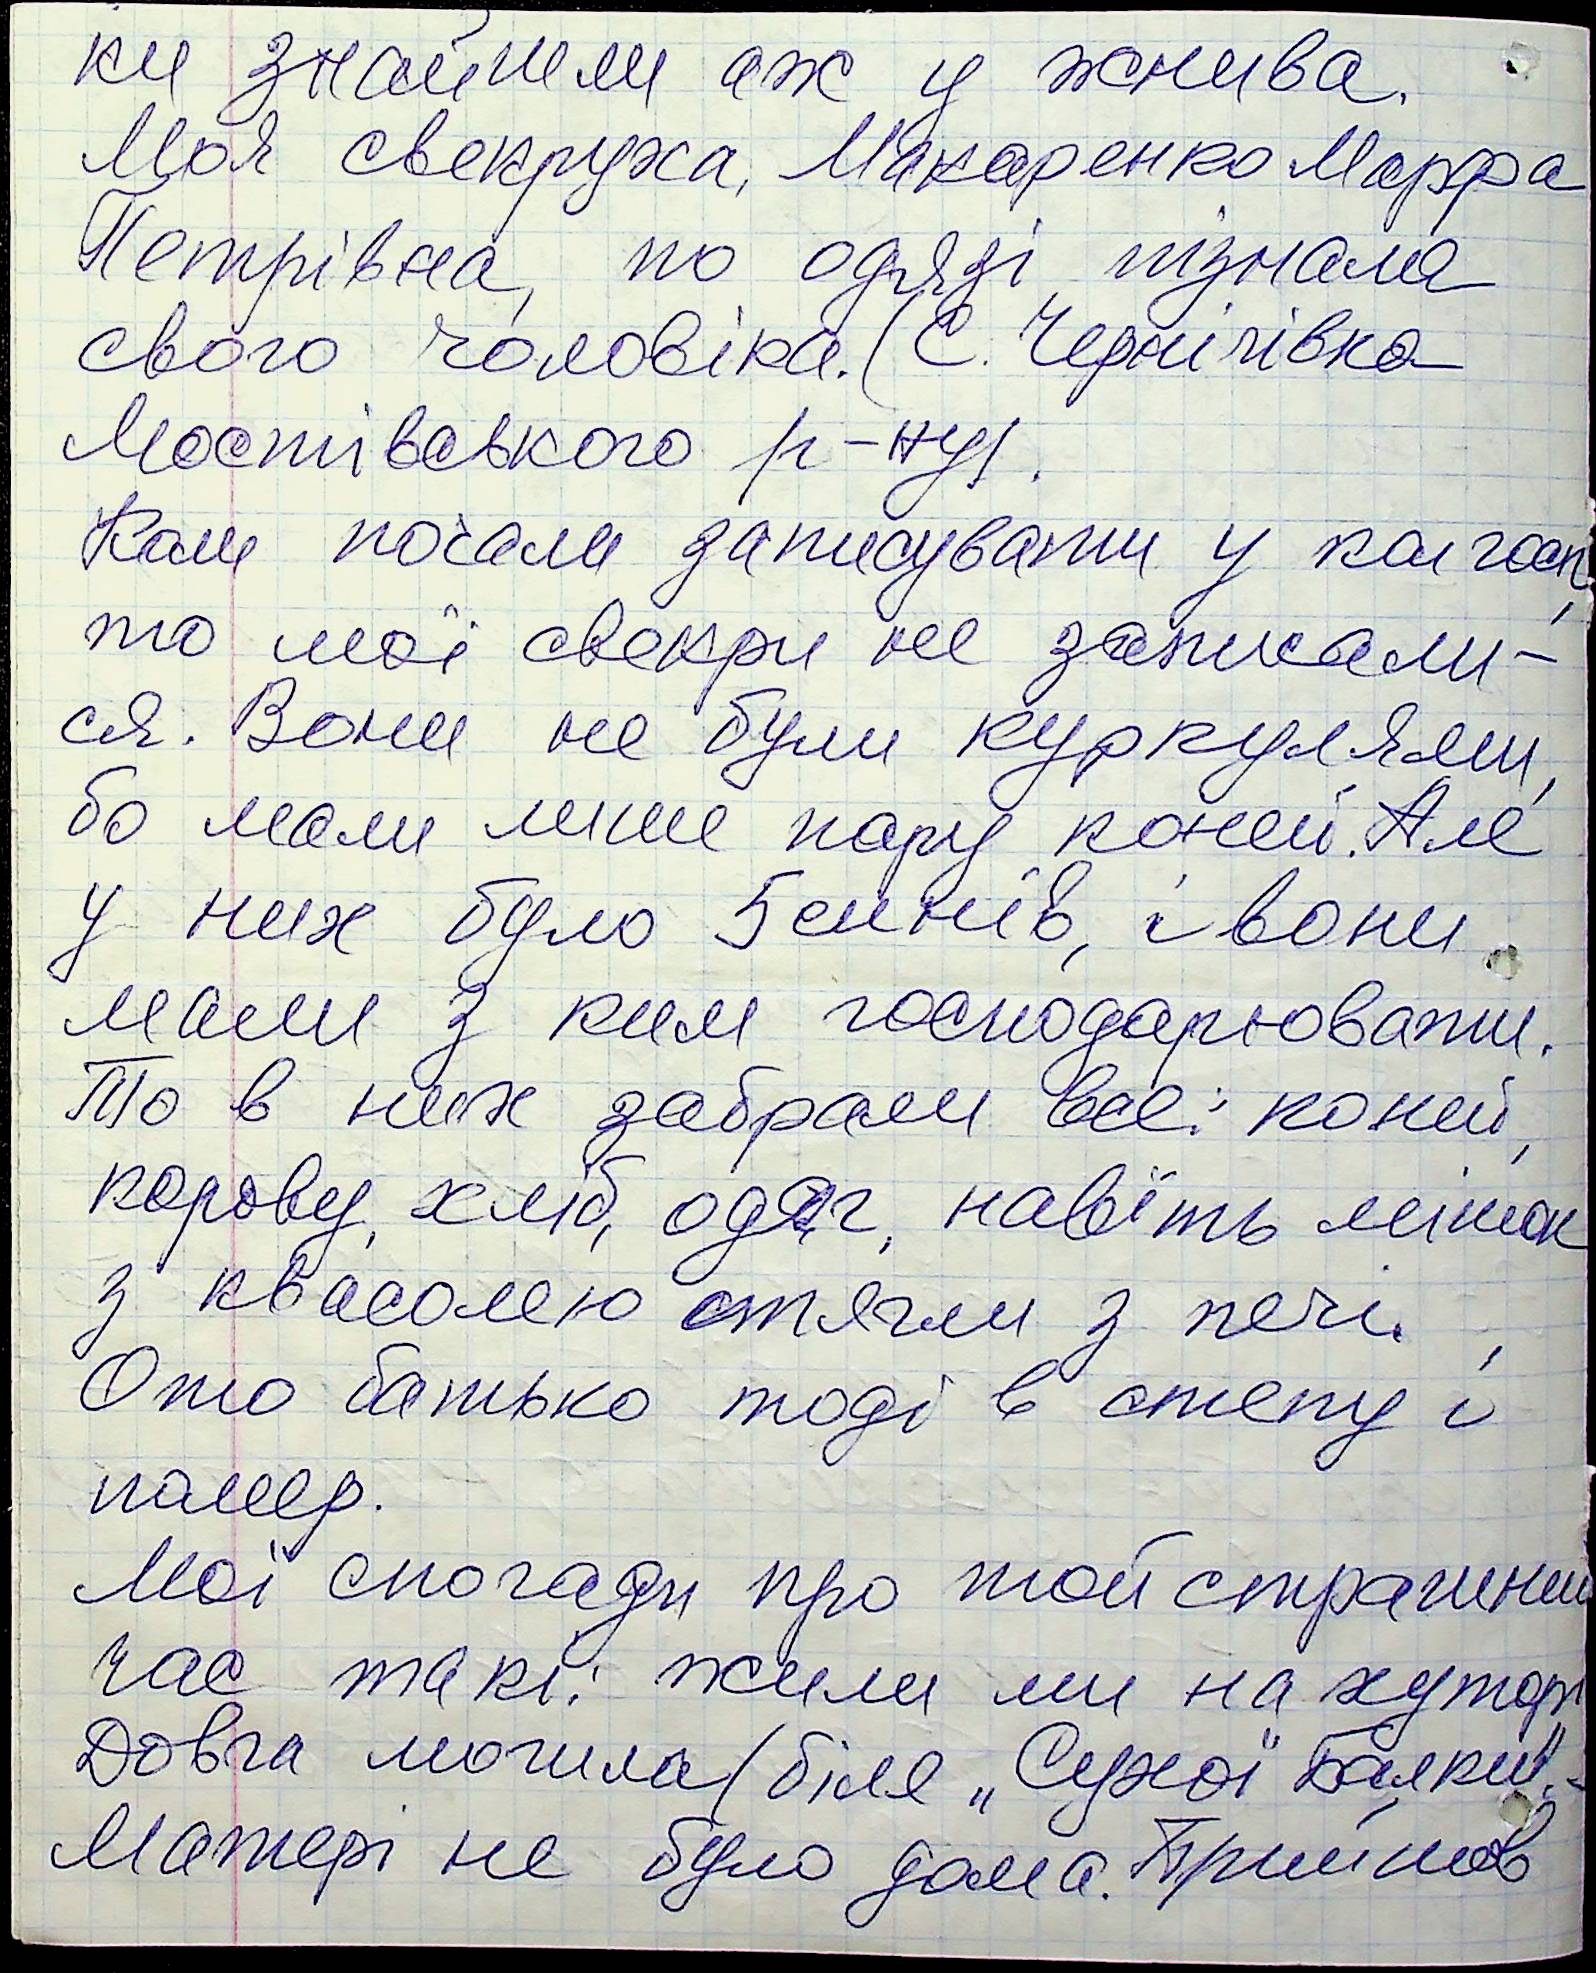 ки знайшли аж у жнива.
Моя свекруха, Макаренко Марфа
Петрівна, по одязі пізнала
свого чоловіка. (С. Чернігівка
Мостівського р-ну).
Коли почали записувати у колгосп,
то мої свекри не записали-
ся. Вони не були куркулями,
бо мали лише пару коней. Але
у них було 5 синів, і вони
мали з ким господарювати.
То в них забрали все: коней,
корову, хліб, одяг, навіть мішок
з квасолею стягли з печі.
Ото батько тоді в степу і
помер.
Мої спогади про той страшний
час такі: жили ми на хуторі
Довга могила (біля „Сухої Балки".-
Матері не було дома. Прийшов